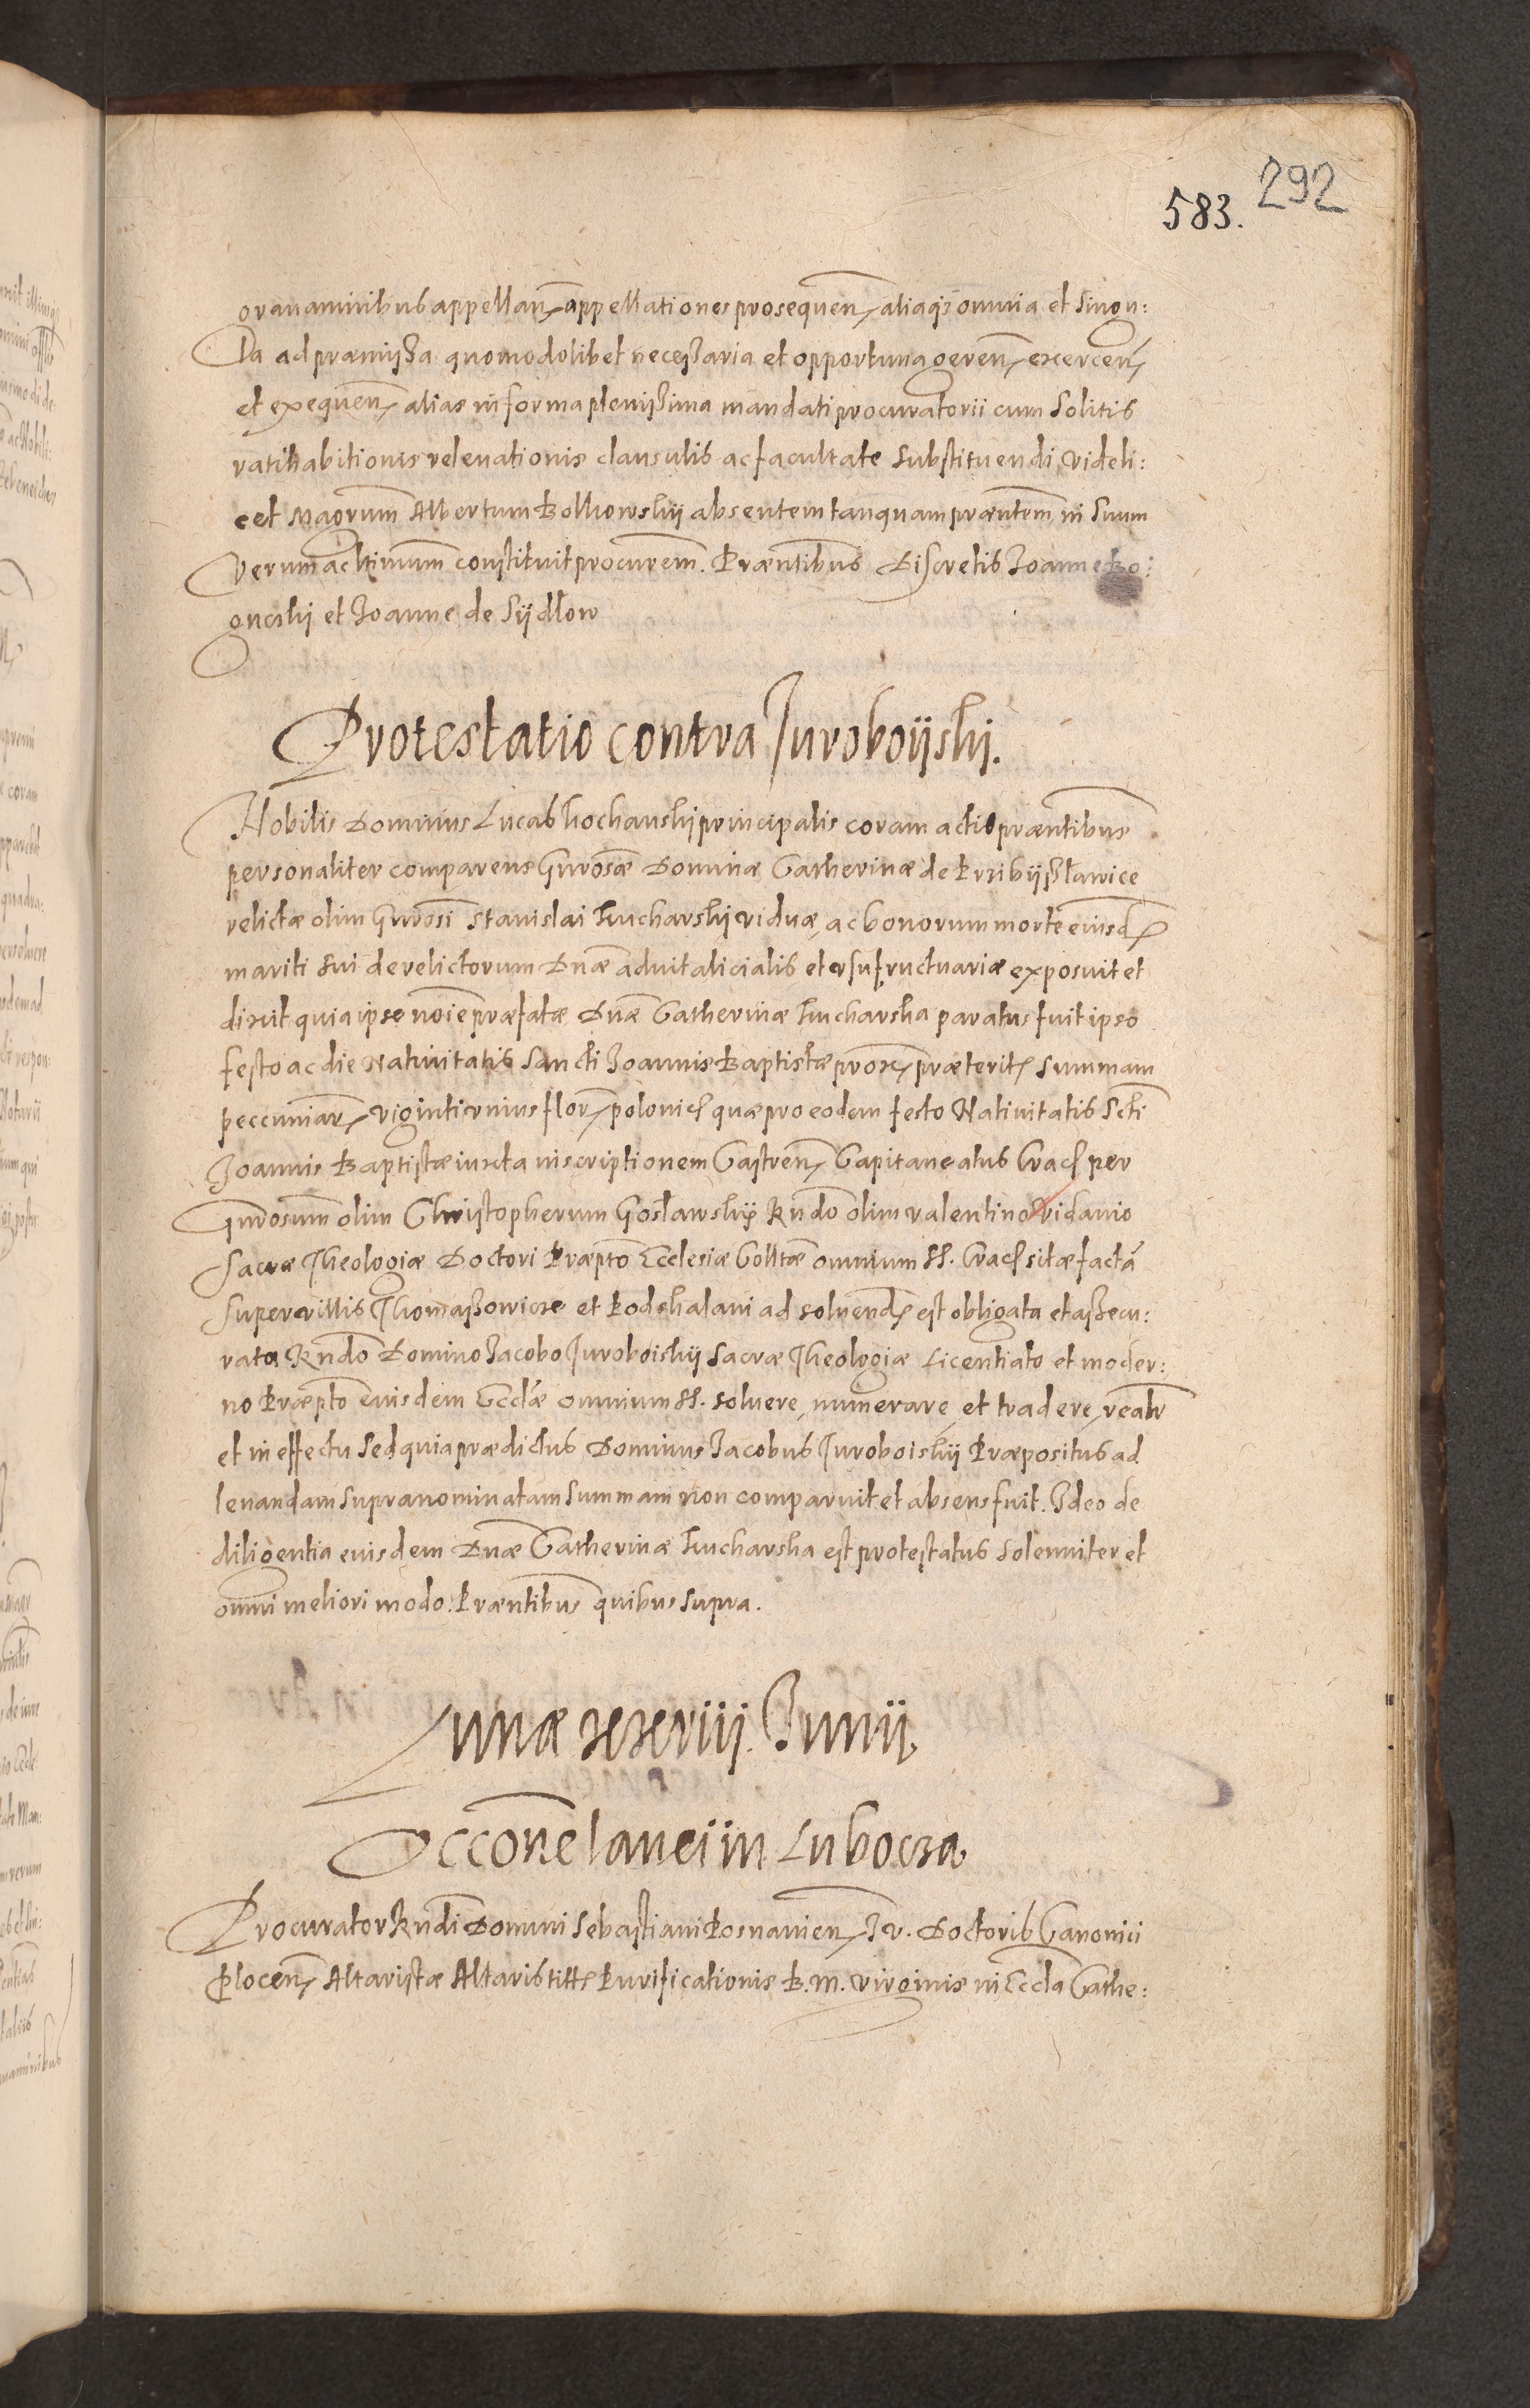 292
583.
gravaminibus appellan̄ appellationes prosequen̄ aliaqȝ omnia et singu:
la ad præmissa quomodolibet necessaria et opportuna geren̄ exercen̄
et exequen̄ alias in forma plenissima mandati procuratorii cum solitis
ratihabitionis relevationis clausulis ac facultate substituendi, videli:
cet Magrum Albertum Bolhowskij absentem tanquam præntem in suum
verum ac ltimum constituit procurem. Præntibus Discretis Joanne Ro:
guskij et Joanne de Sijdlow
Protestatio contra Juroboijski.
Nobilis Dominus Lucas Kochanskj principalis coram actis præntibus
personaliter comparens Gnrosæ Dominæ Catherinæ de Przibijslawice
relictæ olim Gnrosi Stanislai Kucharskj viduæ, ac bonorum morte eiusd
mariti sui derelictorum Dnæ advitalicialis et usufructuariæ exposuit et
dixit quia ipse noie præfatæ Dnæ Catherinæ Kucharska paratus fuit ipso
festo ac die Nativitatis Sancti Joannis Baptistæ prox præterit summam
peccuniar viginti unius flor polonicl quæ pro eodem festo Nativitatis Scti
Joannis Baptistæ iuxta inscriptionem Castren̄ Capitaneatus Crac per
Gnrosum olim Christopherum Goslawskij Rndo olim valentino Vidavio
Sacræ Theologiæ Doctori Præpto Ecclesiæ Colltæ omnium SS. Crac sitæ factā
super villis Thomassowicze et Podskalani ad solvend est obligata et assecu:
rata Rndo Domino Jacobo Juroboiskij Sacræ Theologiæ Licentiato et moder:
no Præpto eiusdem Ecclæ omnium SS. solvere, numerare, et tradere, realr
et in effectu Sed quia prædictus Dominus Jacobus Juroboiskij Præpositus ad
levandam supranominatam summam non comparuit et absens fuit. Ideo de
diligentia eiusdem Dnæ Catherinæ Kucharska est protestatus solenniter et
omni meliori modo. Præntibus quibus supra.
Lunæ xxviii Junii.
Occone lanei in Lubocza
Procurator Rndi Domini Sebastiani Posnanien̄ J v. Doctoris Canonici
Plocen̄ Altaristæ Altaris titt Purificationis B. M. virginis in Eccla Cathe: